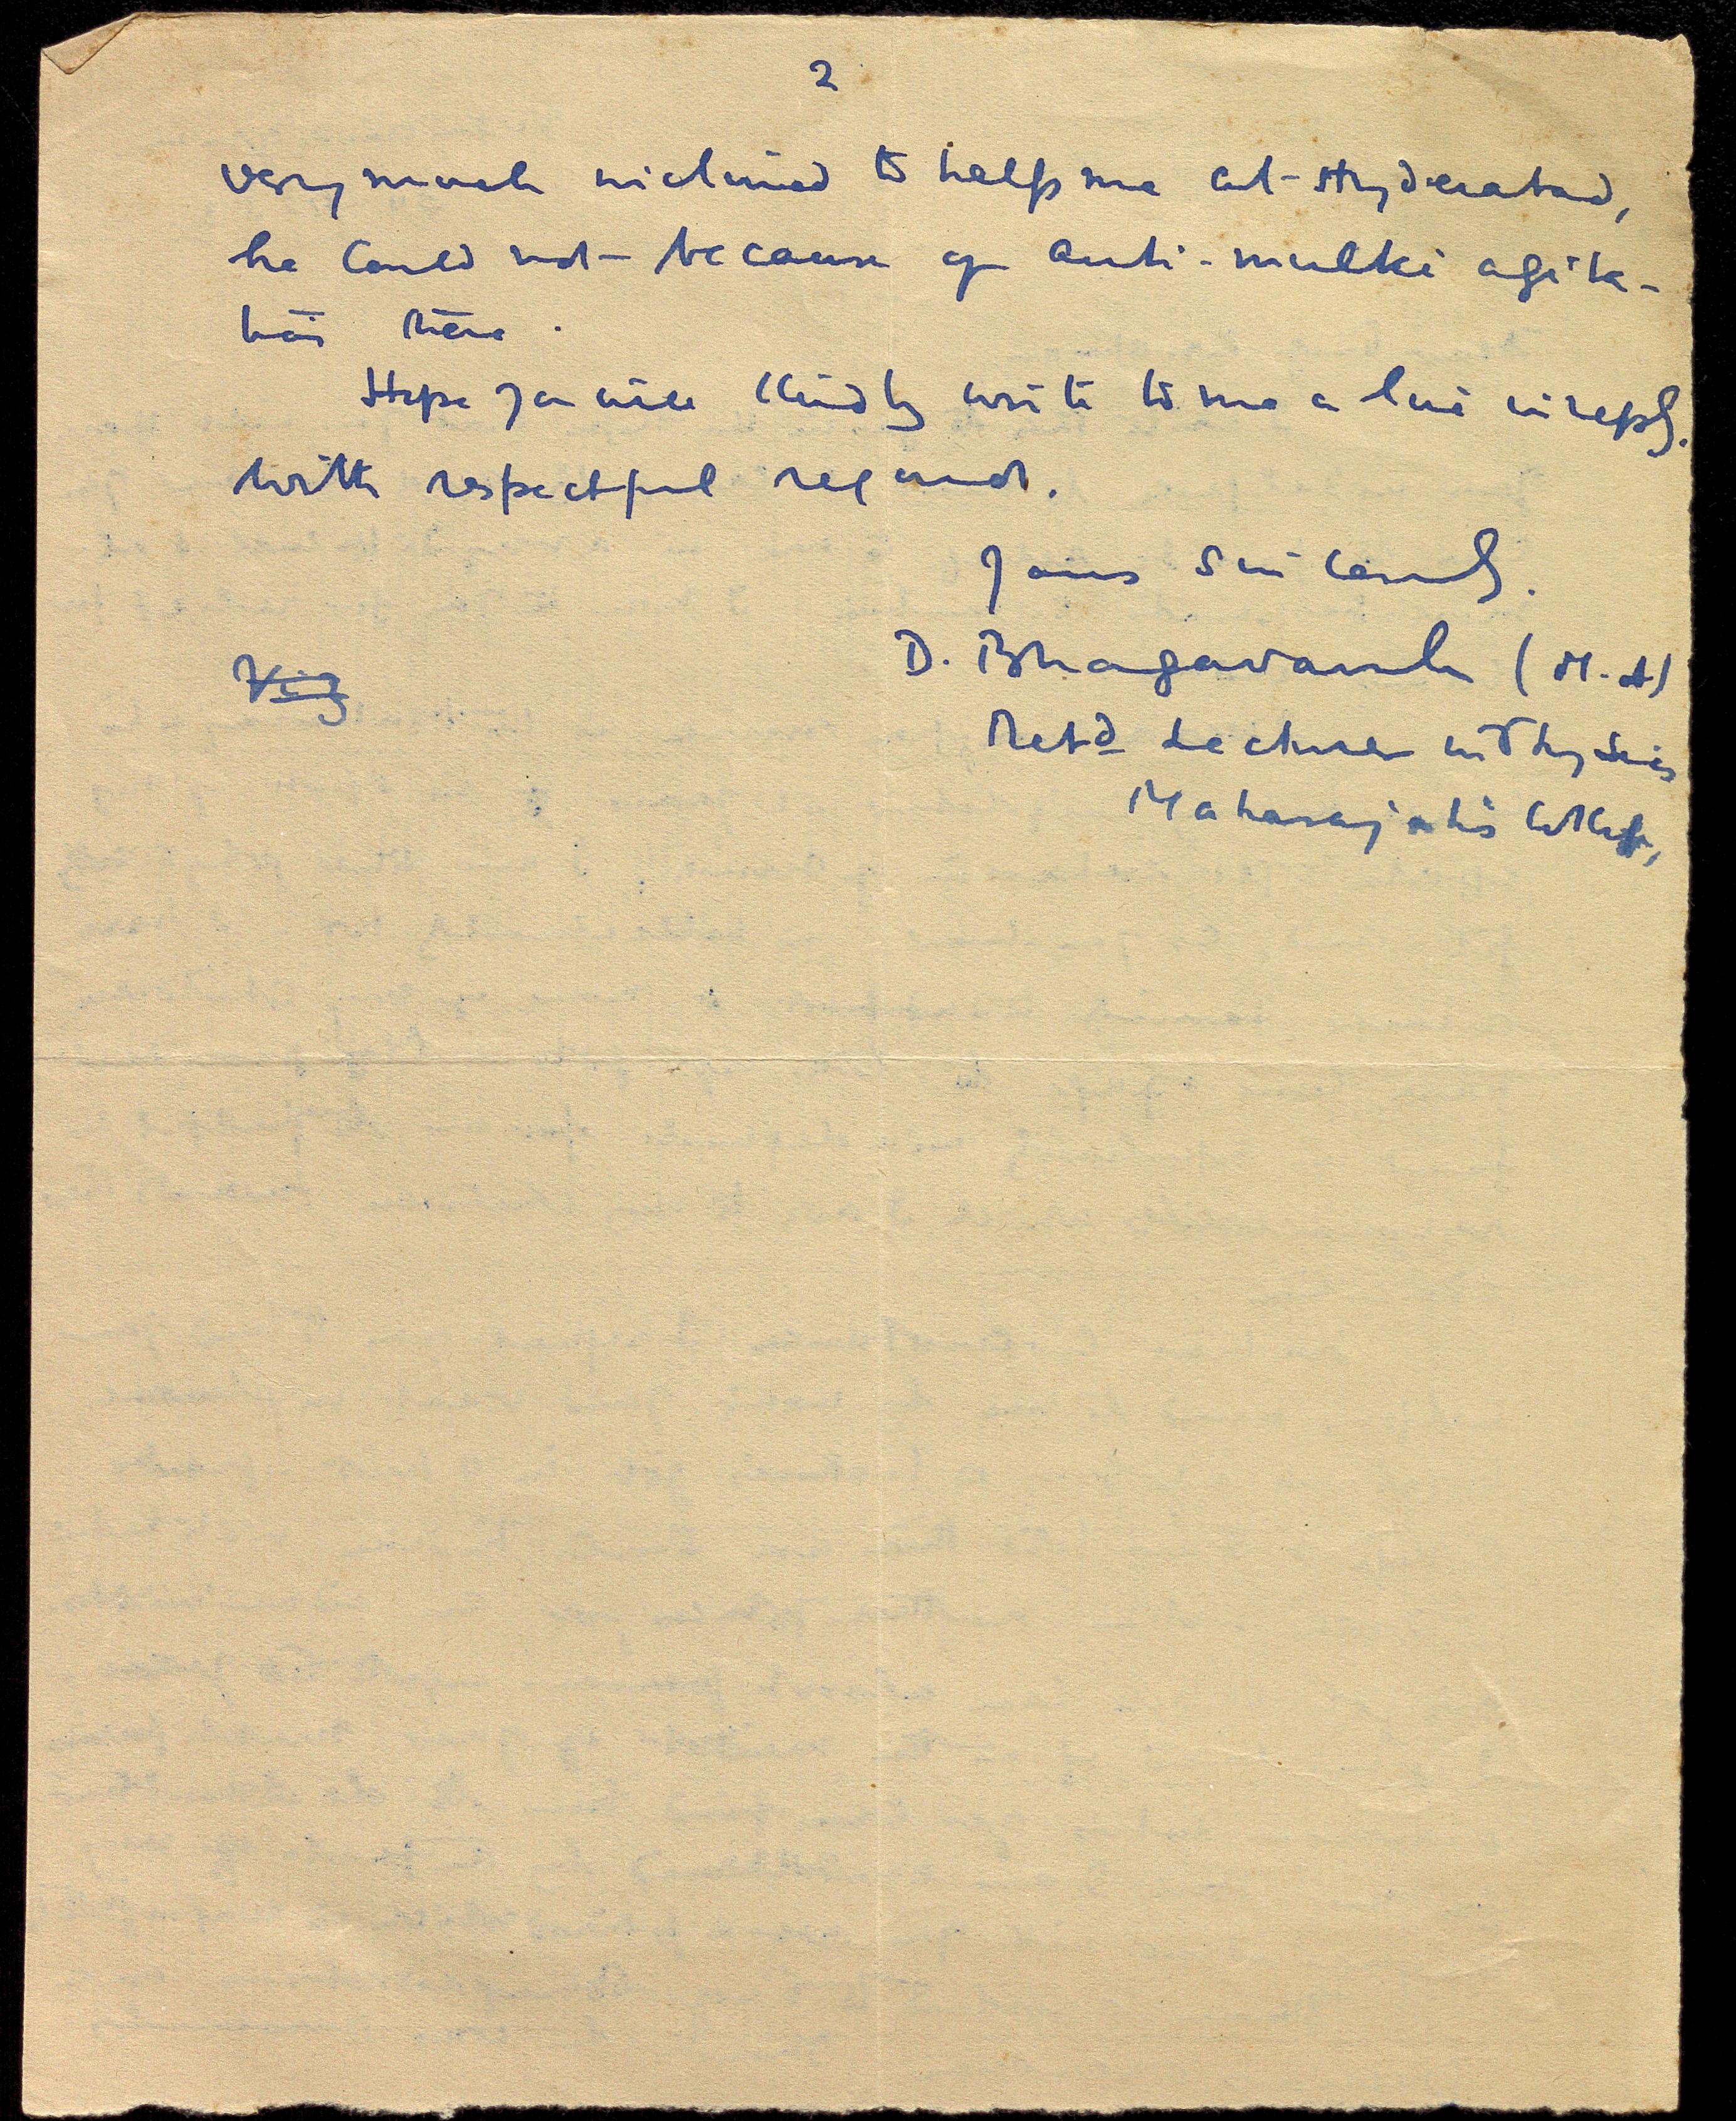 2
very much inclined to help me at Hyderabad,
he could not because of anti-mulki agita-
tion there.
Hope you will kindly write to me a line in reply.
With respectful regards.
Yours Sincerely.
D. Bhagavanulu (M.A)
Viz
Retd Lecturer in Physics
Maharajah's College,